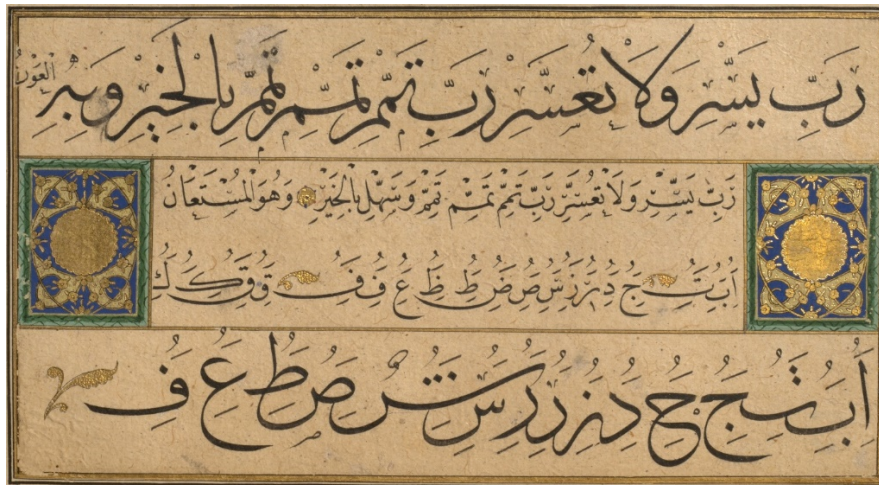 رَبِّ يَسِّرْ وَلَا تُعَسِّرْ رَبِّ تَمِّمْ تَمِّمْ تَمِّمْ بِالْخَيْرِ وَبِهِ الْعَوْنُ
رَبِّ يَسِّرْ وَلَا تُعَسِّرْ رَبِّ تَمِّمْ تَمِّمْ تَمِّمْ وَسَهِّلْ بِالْخَيْرِ وَهُوَ الْمُسْتَعَانُ
ا ب ت ج د ر ز س ص ض ط ظ ع ف ف ق ق ك ك
ا ب ت ج ح د ز ر ر س ش ص ط ع ف